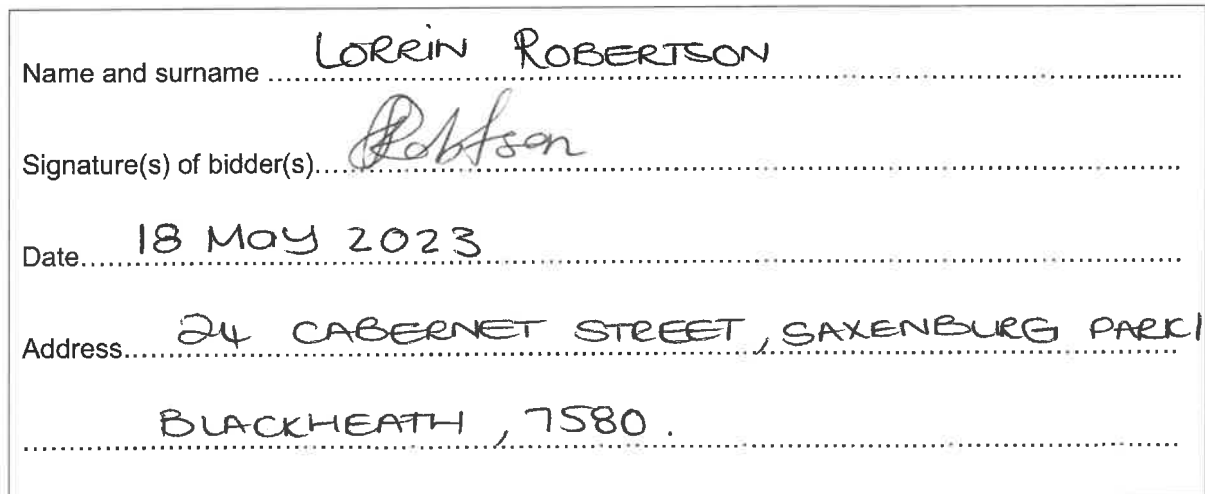 Name and surname LORRIN ROBERTSON
Signature(s) of bidder(s) Robtson
Date 18 May 2023
Address 24 CABERNET STREET, SAXENBURG PARK 1
BLACKHEATH, 7580.